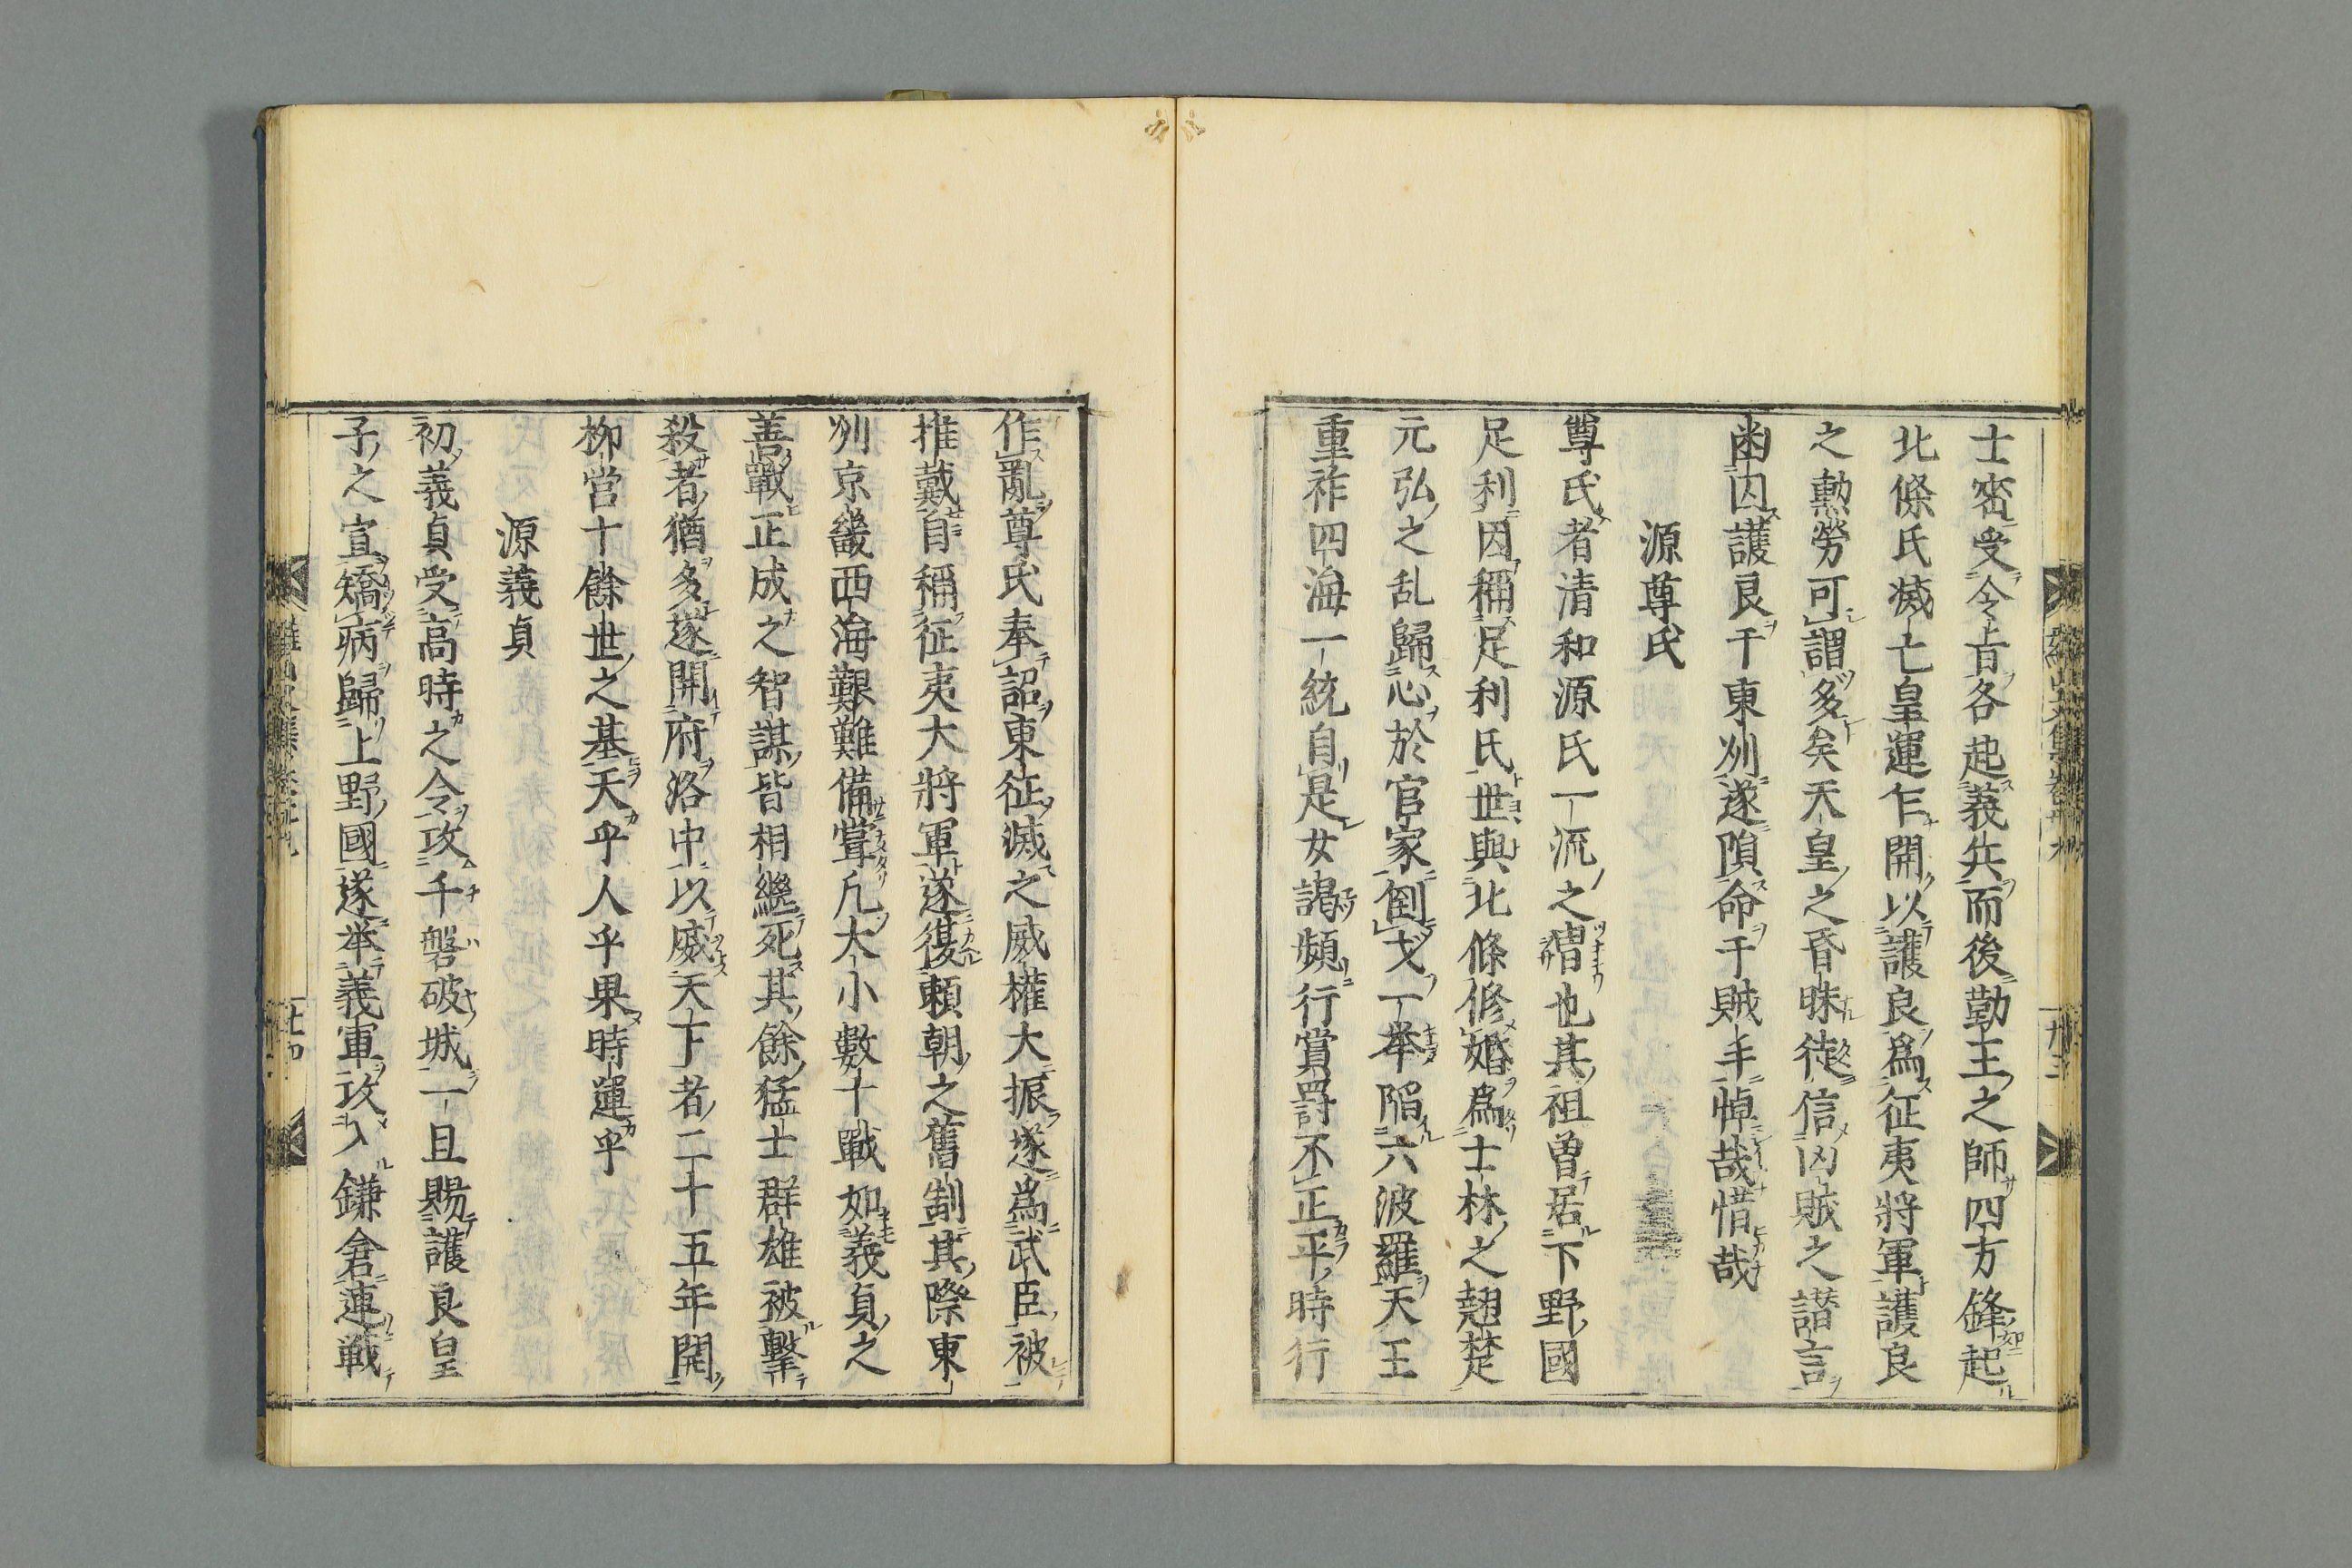 士密受令旨各起義兵而後勤王之師四方鋒起
北條氏滅亡皇運乍開以護良爲征夷將軍護良
之勲勞可謂多矣天皇之昏昧徒信凶賊之譛言
囚護良于東刕遂隕命于賊手悼哉惜哉
源尊氏
尊氏者清和源氏一流之也其祖曽居下野國
足利因稱足利氏世與北條修婚爲士林之翹楚
元弘之乱歸心於官家倒戈一挙陷六波羅天王
重祚四海一統自是女謁頻行賞罸不正平時行
作亂尊氏奉詔東征滅之威權大振遂爲武臣被
推戴自稱征夷大將軍遂復頼朝之舊制其際東
刕京畿西海艱難備甞凡大小數十戰如義貞之
善戰正成之智謀皆相繼死其餘猛士群雄被擊
殺者猶多遂開府洛中以威天下者二十五年開
柳営十餘世之基天乎人乎果時運乎
源義貞
初義貞受高時之令攻千磐破城一旦賜護良皇
子之宣矯病歸上野國遂挙義軍攻入鎌倉連戦